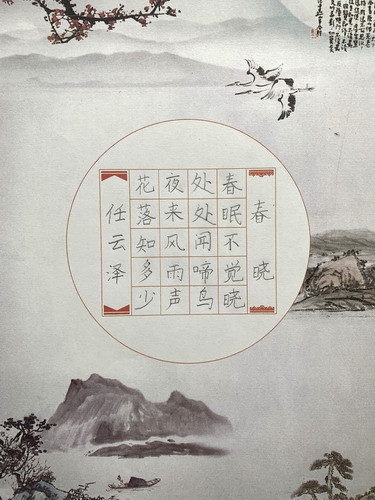 春晓
春眠不觉晓
处处闻啼鸟
夜来风雨声
花落知多少
任云泽